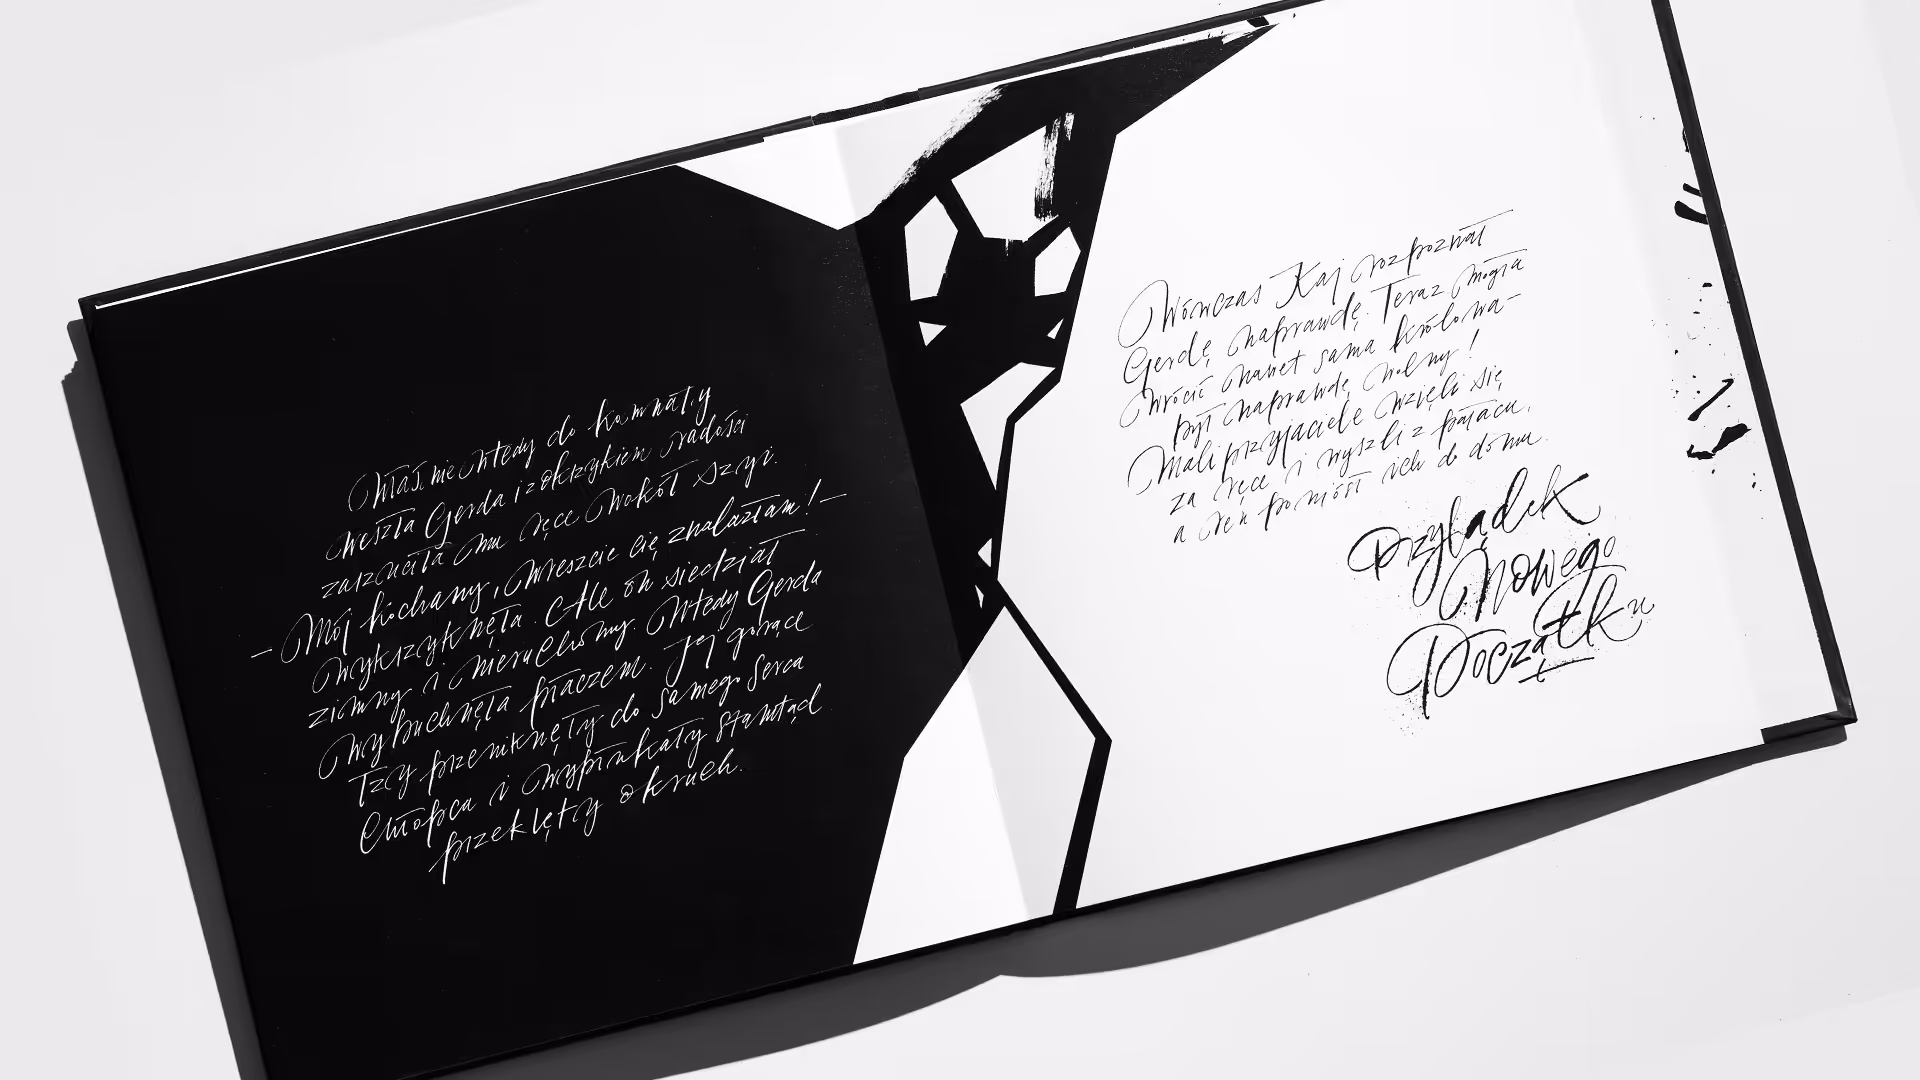 Właśnie wtedy do komnaty
weszła Gerda i z okrzykiem radości
zarzuciła mu ręce wokół szyi.
– Mój kochany, wreszcie cię znalazłam! –
wykrzyknęła. Ale on siedział
zimny i nieruchomy. Wtedy Gerda
wybuchnęła płaczem. Jej gorące
łzy przeniknęły do samego serca
chłopca i wypłukały stamtąd
przeklęty okruch.
Wówczas Kaj rozpoznał
Gerdę naprawdę. Teraz mogła
wrócić nawet sama królowa –
był naprawdę wolny!
Mali przyjaciele wzięli się
za ręce i wyszli z pałacu,
a ren poniósł ich do domu.
Przylądek
Nowego
Początku